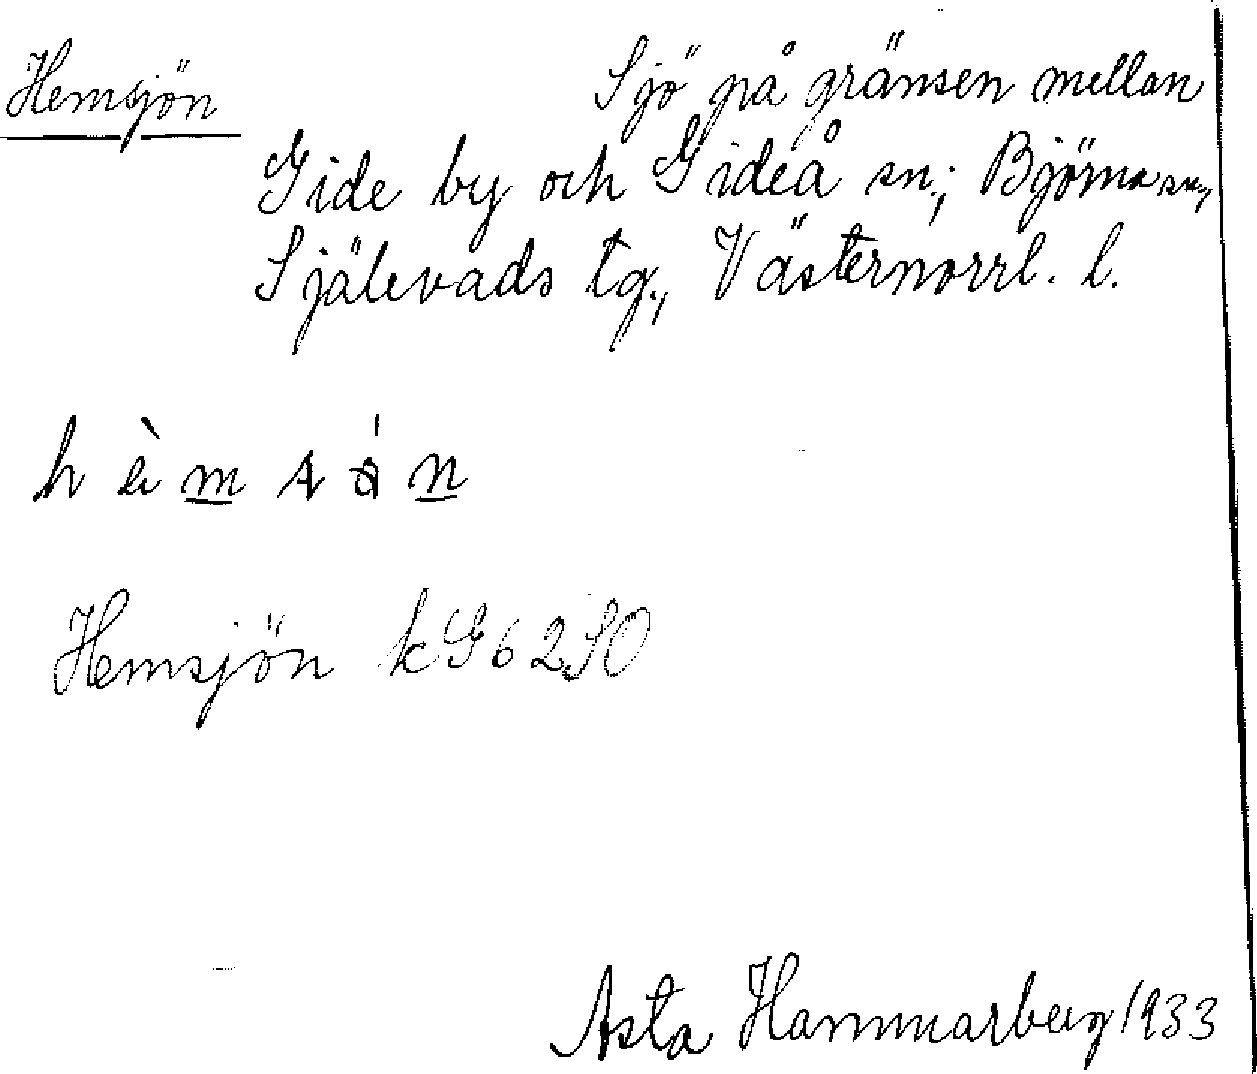 Hemsjön Sjö på gränsen mellan
Gide by och Gideå sn; Björna sn,
Själevads tg, Västernorrl. l.
Hemsjön kG62SO
Asta Hammarberg 1933